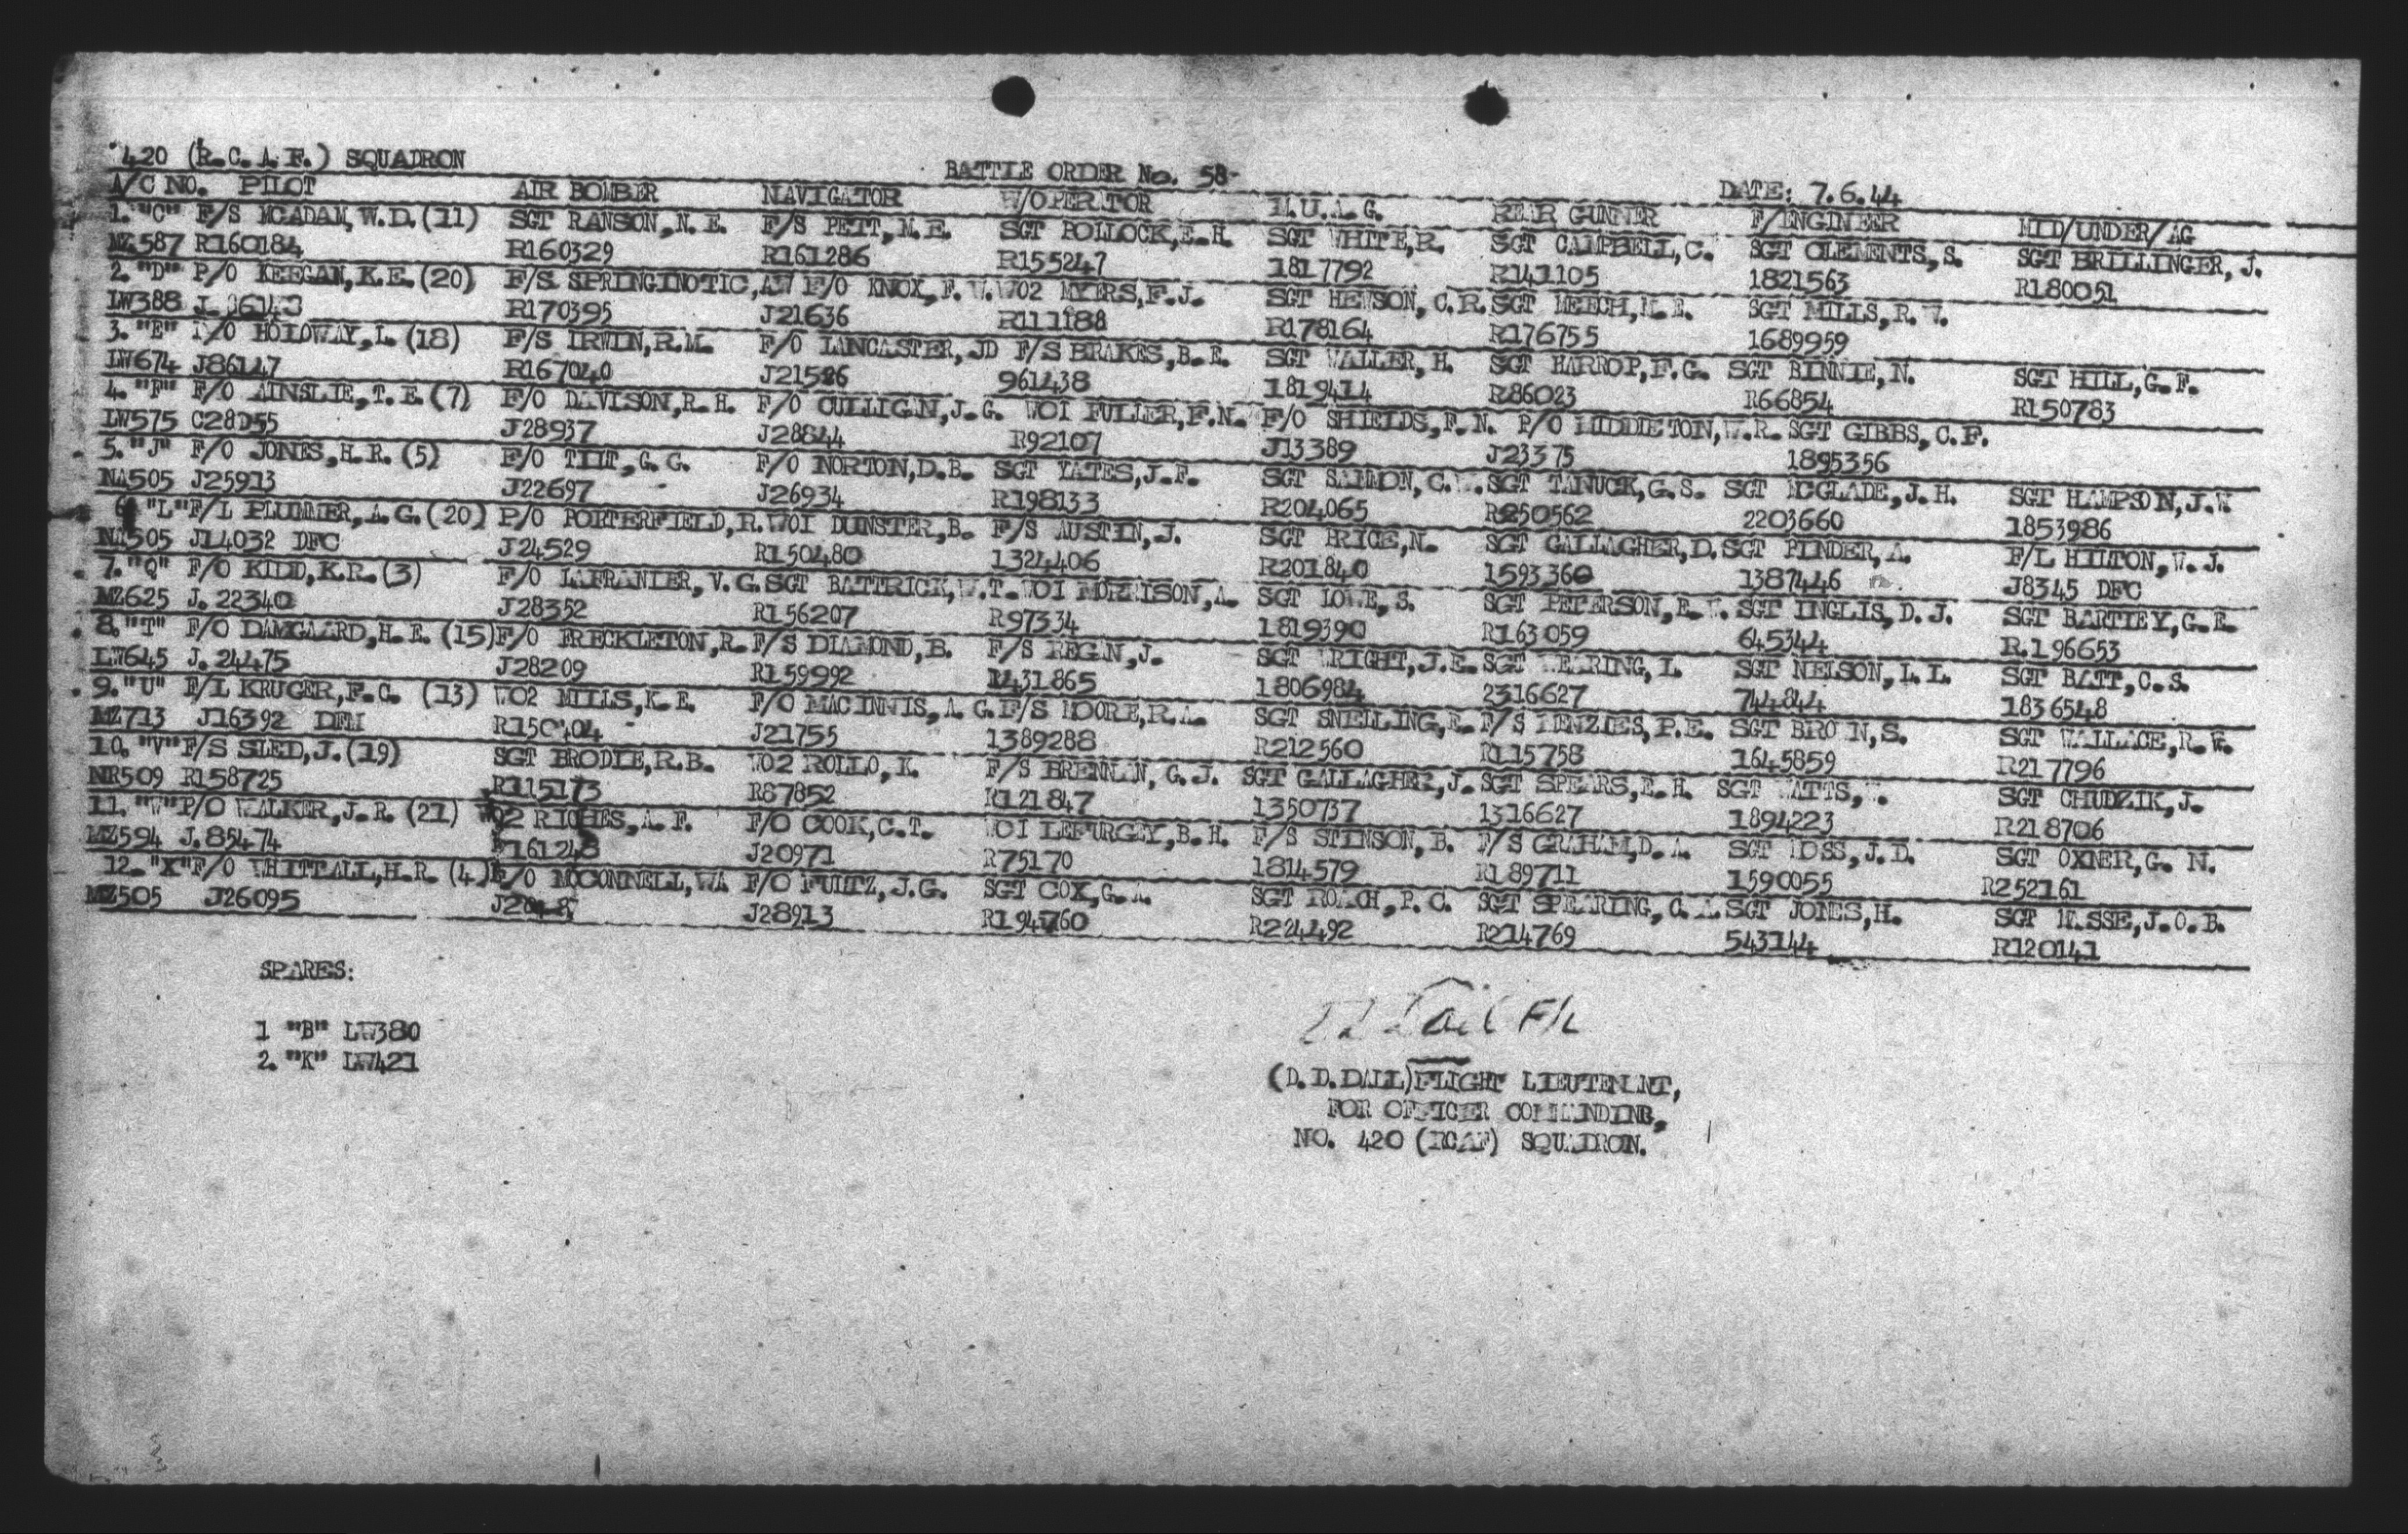 420 (R.C.A.F.) SQUADRON BATTLE ORDER No. 58 DATE: 7.6.44
A/C NO. PILOT AIR BOMBER NAVIGATOR W/OPERATOR M.U.A.G. REAR GUNNER F/ENGINEER MID/UNDER/AG
1. "C" F/S MCADAM, W.D. (11) SGT RANSON, N.E. F/S PETT, M.E. SGT POLLOCK, E.H. SGT WHITE, R. SGT CAMPBELL, C. SGT CLEMENTS, S. SGT BRILLINGER, J.
MZ587 R160184 R160329 R161286 R155247 1817792 R141105 1821563 R180051
2. "D" P/O KEEGAN, K.E. (20) F/S SPRINGINOTIC, AW F/O KNOX, F.W. WO2 MYERS, F.J. SGT HENSON, C.R. SGT MEECH, M.E. SGT MILLS, R.W.
LW388 R170395 J21636 R111188 R178164 R176755 1689959
3. "E" P/O HOLDWAY, L. (18) F/S IRWIN, R.M. F/O LANCASTER, JD F/S BRAKES, B.E. SGT WALLER, H. SGT HARROP, F.G. SGT BINNIE, N. SGT HILL, G.F.
LW674 J86147 R167040 J21586 961438 1819414 R86023 R66854 R150783
4. "F" F/O AINSLIE, T.E. (7) F/O DAVISON, R.H. F/O CULLIGAN, J.G. WOI FULLER, F.N. F/O SHIELDS, F.N. P/O MIDDLETON, W.R. SGT GIBBS, C.F.
LW575 C28055 J28937 J28844 R92107 J13389 J23375 1895356
5. "J" F/O JONES, H.R. (5) F/O TILT, G.G. F/O NORTON, D.B. SGT YATES, J.F. SGT SALMON, C.W. SGT TANUCK, G.S. SGT MCGLADE, J.H. SGT HAMPSON, J.W
NA505 J25913 J22697 J26934 R198133 R204065 R250562 2203660 1853986
6. "L" F/L PLUMMER, A.G. (20) P/O PORTERFIELD, R. WOI DUNSTER, B. F/S AUSTIN, J. SGT PRICE, N. SGT GALLAGHER, D. SGT PINDER, A. F/L HILTON, W.J.
NA505 J14032 DFC J24529 R150480 1324406 R201840 1593360 1387446 J8345 DFC
7. "Q" F/O KIDD, K.R. (3) F/O LAFRANIER, V.G. SGT BATTRICK, W.T. WOI MORRISON, A. SGT LOWE, S. SGT PETERSON, E.W. SGT INGLIS, D.J. SGT BARTLEY, G.E.
MZ625 J.22340 J28352 R156207 R97334 1819390 R163059 645344 R.196653
8. "T" F/O DAMGAARD, H.E. (15) F/O FRECKLETON, R. F/S DIAMOND, B. F/S REGAN, J. SGT WRIGHT, J.E. SGT WEARING, L. SGT NELSON, L.L. SGT BATT, C.S.
LW645 J.24475 J28209 R159992 1431865 1806984 2316627 744844 1836548
9. "U" F/L KRUGER, F.C. (13) WO2 MILLS, K.E. F/O MACINNIS, A.G. F/S MOORE, R.A. SGT SNELLING, E. F/S MENZIES, P.E. SGT BROWN, S. SGT WALLACE, R.W.
MZ713 J16392 DFM J21755 1389288 R212560 R115758 1645859 R217796
10. "V" F/S SLED, J. (19) SGT BRODIE, R.B. WO2 ROLLO, K. F/S BRENNAN, G.J. SGT GALLAGHER, J. SGT SPEARS, E.H. SGT WATTS, SGT CHUDZIK, J.
NR509 R158725 R115173 R87852 R121847 1350737 1316627 1894223 R218706
11. "W" P/O WALKER, J.R. (21) WO2 RICHES, A.F. F/O COOK, C.T. WOI LEFURGEY, B.H. F/S STINSON, B. F/S GRAHAM, D.A. SGT MOSS, J.D. SGT OXNER, G.N.
MZ594 J.85474 J20971 R75170 1814579 R189711 1590055 R252161
12. "X" F/O WHITTALL, H.R. (4) F/O MCCONNELL, WA F/O FULTZ, J.G. SGT COX, G.A. SGT ROACH, P.C. SGT SPEARING, C.A. SGT JONES, H. SGT MASSE, J.O.B.
MZ505 J26095 J28913 R194760 R224492 R214769 543144 R120141
SPARES:
1 "B" LW380
2. "K" LW421
(D.D.DALL) FLIGHT LIEUTENANT,
FOR OFFICER COMMANDING,
NO. 420 (RCAF) SQUADRON.